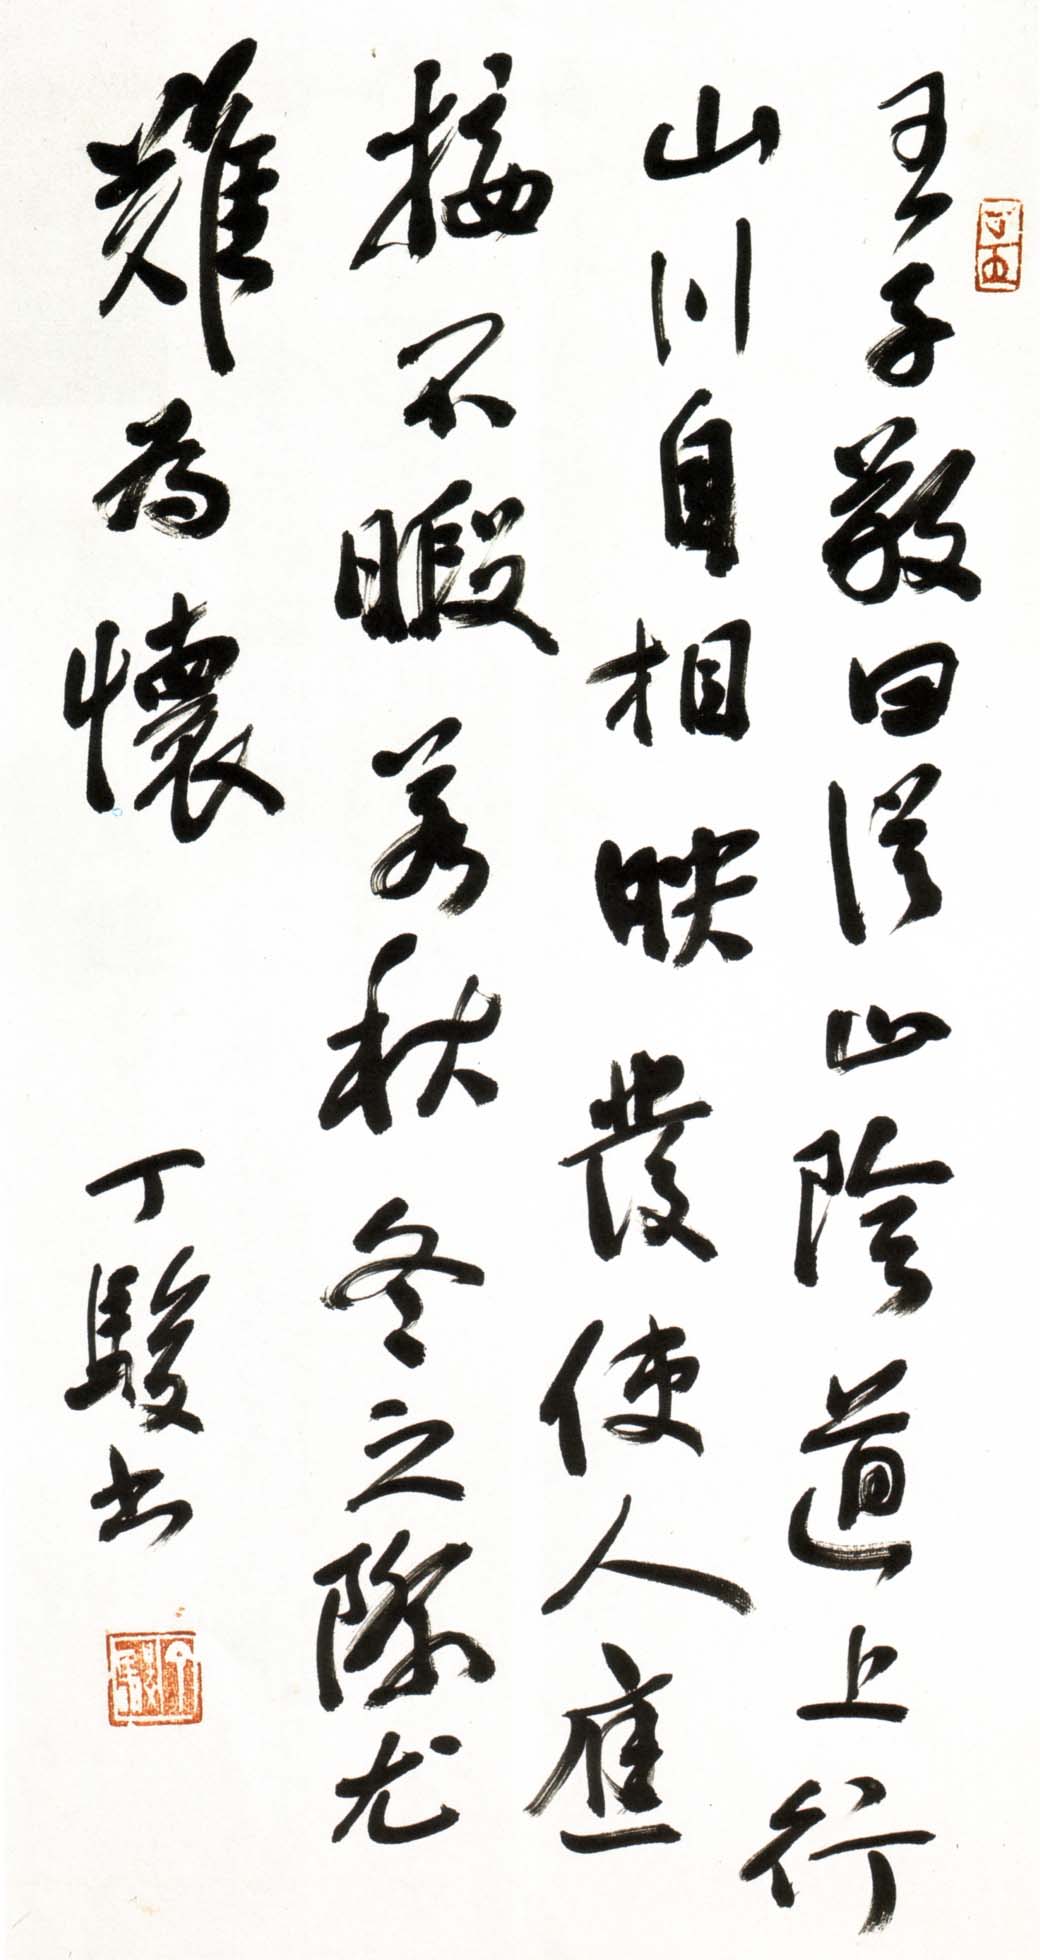 王子敬曰從山陰道上行
山川自相映發使人應
接不暇若秋冬之際尤
難為懷
丁駿書
丁丑
丁駿